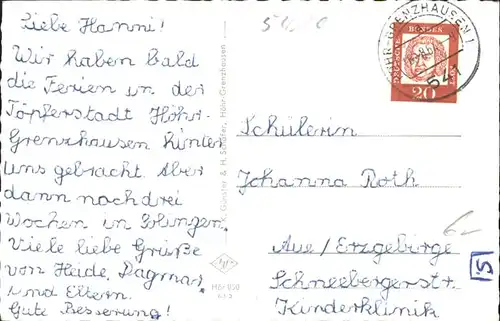 Liebe Hanni!
Wir haben bald
die Ferien in der
Töpferstadt Höhr-
Grenzhausen hinter
uns gebracht. Aber
dann noch drei
Wochen in Solingen.
Viele liebe Grüße
von Heide, Dagmar
und Eltern.
Gute Besserung!
Höhr-Grenzhausen
HÖHR-GRENZHAUSEN 1
541
DEUTSCHE BUNDESPOST
20
Schülerin
Johanna Roth
Aue/Erzgebirge
Schneebergerstr.
Kinderklinik
6,-
S